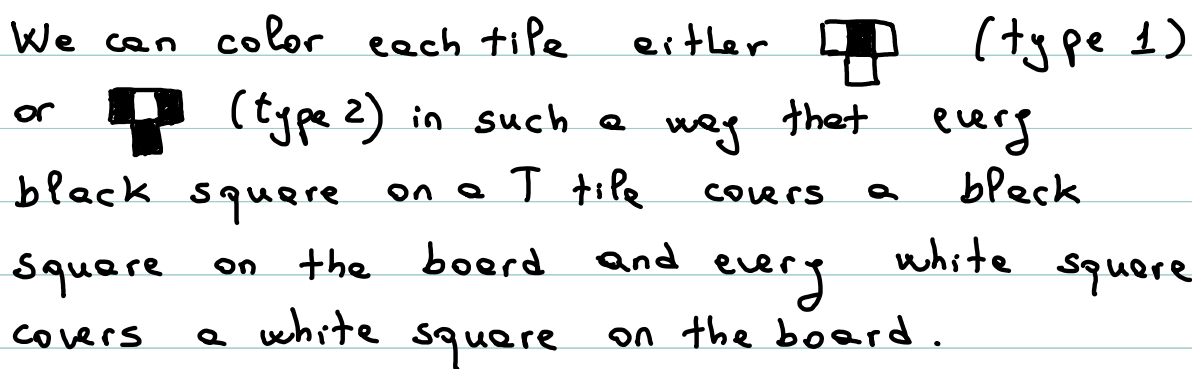 We can color each tile either (type 1)
or (type 2) in such a way that every
black square on a T tile covers a black
square on the board and every white square
covers a white square on the board.